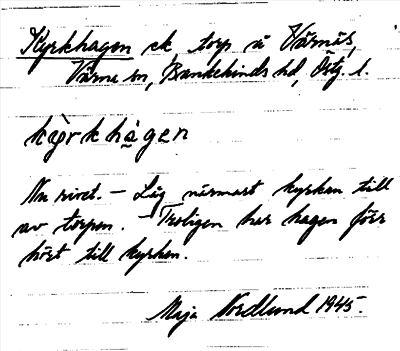 Kyrkhagen ck torp u Värnäs,
Värna sn, Bankekinds hd, Östg. l.
kỳrkhàgen
Nu rivet. – Låg närmast kyrkan till
av torpen. – Troligen har hagen förr
hört till kyrkan.
Maja Nordlund 1945.